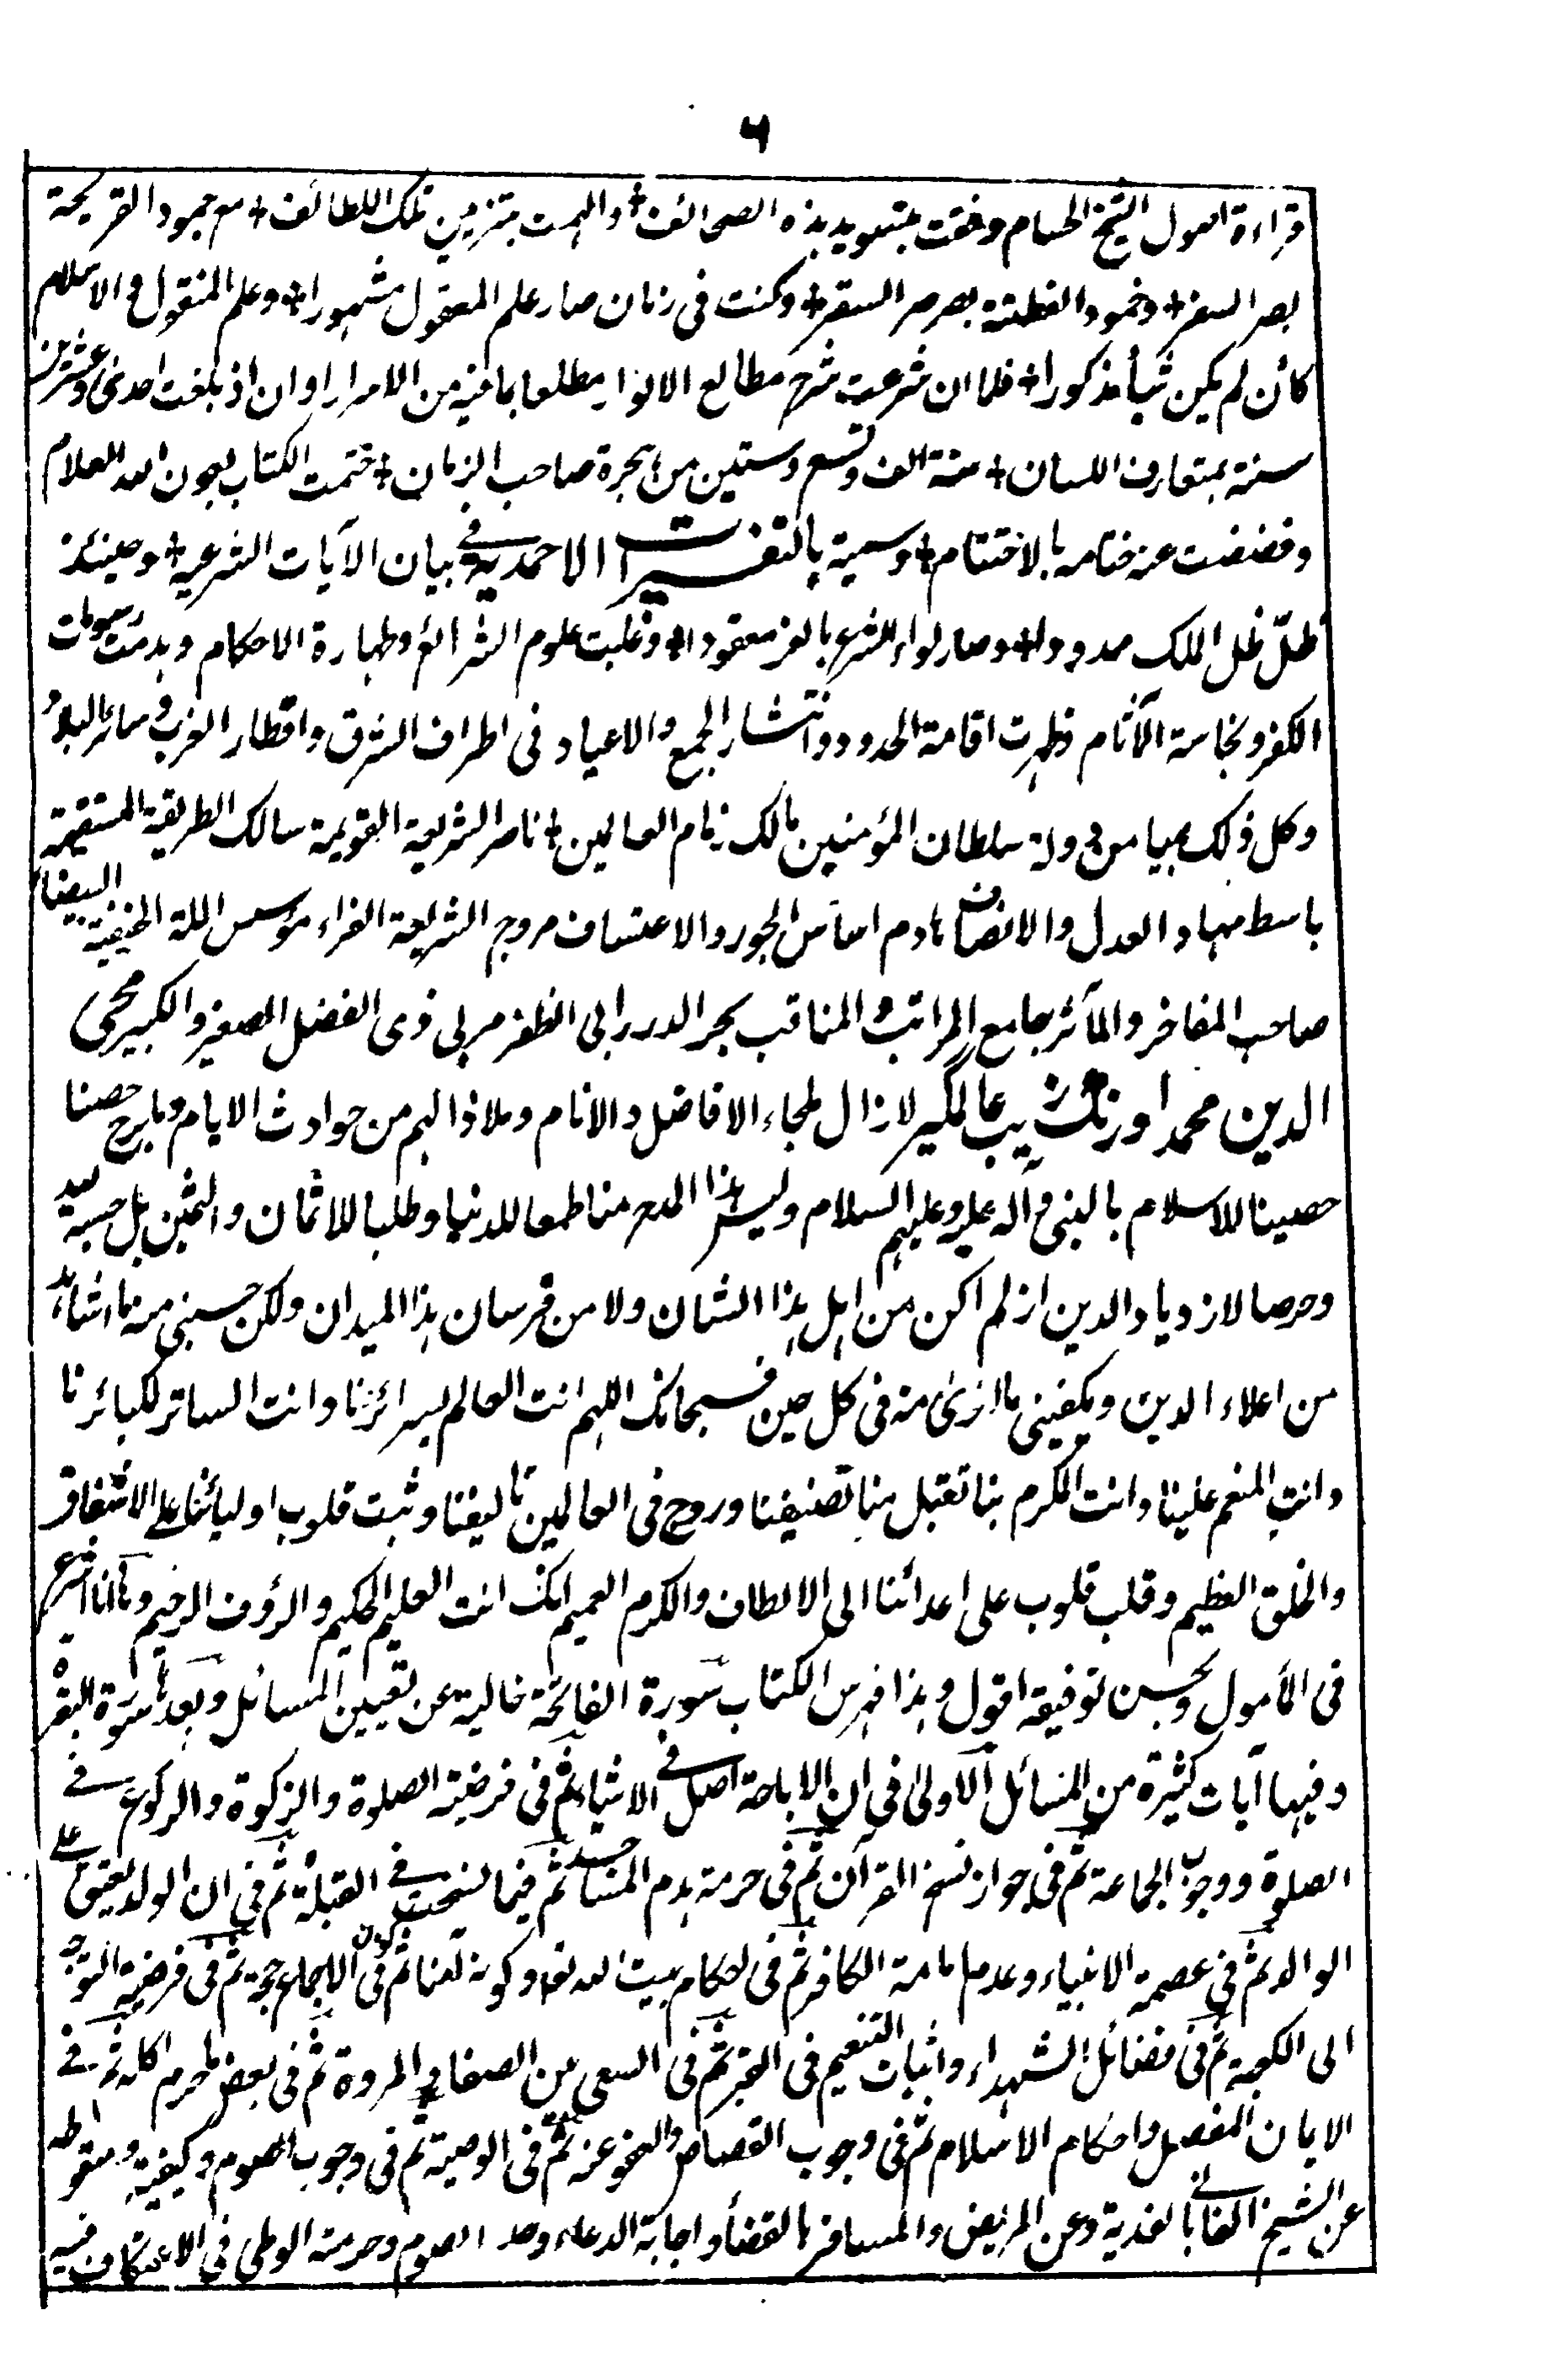 ٦
قراءة اصول الشيخ الحسام وفقت بتسويد هذه الصحائف + والهمت بتزيين تلك اللطائف + مع جمود القريحة
بصر السفر + وخمود الفطنة بصرصر السقر + وكنت في زمان صار علم المعقول مشهورا + وعلم المنقول والاسلام
كأن لم يكن شيأ مذكورا + فلما ان شرعت شرح مطالع الانوار مطلعا بما فيه من الاسرار اوان اذ بلغت احدى وعشرين
سنة بمتعارف اللسان + سنة الف وتسع وستين من هجرة صاحب الزمان + ختمت الكتاب بعون الله العلام
وفضضت عنه ختامه بالاختتام + وسميته بالتفسيرات الاحمدية في بيان الآيات الشرعية + وحينئذ
ظلّ ظل الملك ممدودا + وصار لواء الشرع بالعز معقودا + وغلبت علوم الشرائع وطهارة الاحكام وهدمت رسومات
الكفر ونجاسة الآثام وظهرت اقامة الحدود وانتشار الجمع والاعياد في اطراف الشرق واقطار الغرب وسائر البلاد
وكل ذلك بميامن دولة سلطان المؤمنين مالك زمام العالمين + ناصر الشريعة القويمة سالك الطريقة المستقيمة
باسط مهاد العدل والانصاف هادم اساس الجور والاعتساف مروج الشريعة الغراء مؤسس الملة الحنيفية البيضاء
صاحب المفاخر والمآثر جامع المراتب والمناقب بحر الدرر ابى الظفر مربى ذوى الفضل الصغير والكبير محى
الدين محمد اورنگ زيب عالمگير لازال ملجاء الافاضل والانام وملاذا لهم من حوادث الايام وما برح حصنا
حصينا للاسلام بالنبى وآله عليه وعليهم السلام وليس هذا المدح منا طمعا للدنيا وطلبا للاثمان والثمين بل حسبة لله
وحرصا لازدياد الدين اذ لم اكن من اهل هذا الشان ولا من فرسان هذا الميدان ولكن حسبى منه ما اشاهد
من اعلاء الدين ويكفينى ما ارى منه في كل حين فسبحانك اللهم انت العالم بسرائرنا وانت الساتر لكبائرنا
وانت المنعم علينا وانت المكرم بنا تقبل منا تصنيفنا وروج في العالمين تاليفنا وثبت قلوب اوليائنا على الاشفاق
والخلق العظيم وقلب قلوب على اعدائنا الى الالطاف والكرم العميم انك انت العليم الحكيم والرؤف الرحيم وها انا اشرع
في المأمول وبحسن توفيقه اقول وهذا فهرس الكتاب سورة الفاتحة خالية عن تعيين المسائل وبعدها سورة البقرة
وفيها آيات كثيرة من المسائل الاولى في ان الاباحة اصل في الاشياء ثم في فرضية الصلوة والزكوة والركوع في
الصلوة ووجوب الجماعة ثم في جواز نسخ القرآن ثم في حرمة هدم المساجد ثم فيما ينسخت في القبلة ثم في ان الولد يعتق على
الوالد ثم في عصمة الانبياء وعدم امامة الكافر ثم في احكام بيت الله تعالى وكونه آمنا ثم في كون الاجماع حجة ثم في فرضية التوجه
الى الكعبة ثم في فضائل الشهداء واثبات التنعيم في القبر ثم في السعى بين الصفا والمروة ثم في بعض ما حرم اكله ثم في
الايمان المفصل واحكام الاسلام ثم في وجوب القصاص والعفو عنه ثم في الوصية ثم في وجوب الصوم وكيفية وسقوطه
عن الشيخ الفانى بالفدية وعن المريض والمسافر بالقضأ واجابة الدعاء وحد الصوم وحرمة الوطى في الاعتكاف فيه